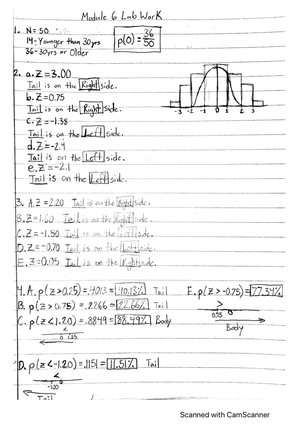 Module 6 Lab Work
1. N=50
14-Younger than 30yrs
36-30yrs or Older
p(0)=36/50
2. a. Z=3.00
Tail is on the Right side.
b. Z=0.75
Tail is on the Right side.
C. Z=-1.38
Tail is on the Left side.
d. Z=-2.4
Tail is on the Left side.
e. Z=-2.1
Tail is on the Left side.
-3 -2 -1 0 1 2 3
3. A. Z=2.20 Tail is on the Right side.
B. Z=1.60 Tail is on the Right side.
C. Z=-1.50 Tail is on the Left side.
D. Z=-0.70 Tail is on the Left side.
E. Z=0.05 Tail is on the Right side.
4. A. p(Z>0.25)=.4013=40.13% Tail
E. p(Z>-0.75)=77.34%
B. p(Z>0.75)=.2266=22.66% Tail
C. p(Z<1.20)=.8849=88.49% Body
<
>
0
0
Body
D. p(Z<-1.20)=.1151=11.51% Tail
<
-1.20 0
Tail
Scanned with CamScanner